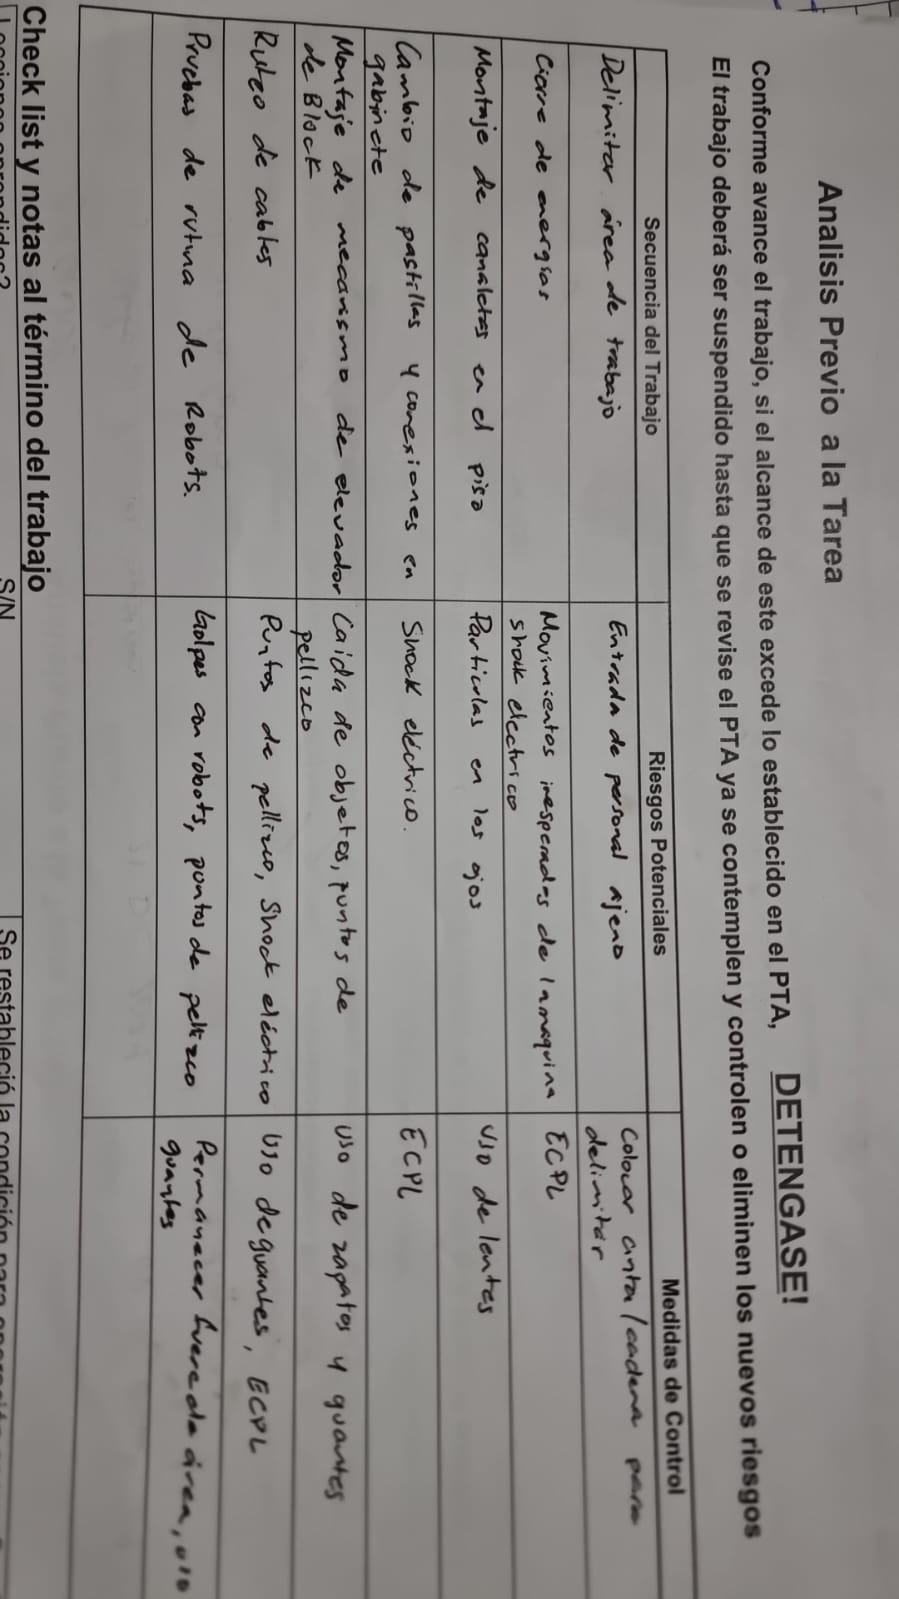 Analisis Previo a la Tarea
Conforme avance el trabajo, si el alcance de este excede lo establecido en el PTA, DETENGASE!
El trabajo deberá ser suspendido hasta que se revise el PTA ya se contemplen y controlen o eliminen los nuevos riesgos
Secuencia del Trabajo
Riesgos Potenciales
Medidas de Control
Delimitar área de trabajo
Entrada de personal ajeno
Colocar cinta/cadena para
delimitar
Cierre de energías
Movimientos inesperados de la maquina
shock electrico
ECPL
Montaje de canaletas en el piso
Particulas en los ojos
Uso de lentes
Cambio de pastillas y conexiones en
gabinete
Shock eléctrico.
ECPL
Montaje de mecanismo de elevador
de Block
Caida de objetos, puntos de
pellizco
Uso de zapatos y guantes
Ruteo de cables
Puntos de pellizco, Shock eléctrico
Uso de guantes, ECPL
Pruebas de rutina de Robots.
Golpes con robots, puntos de pellizco
Permanecer fuera de área, uso
guantes
Check list y notas al término del trabajo
Lecciones aprendidas?
S/N
Se restableció la condición para